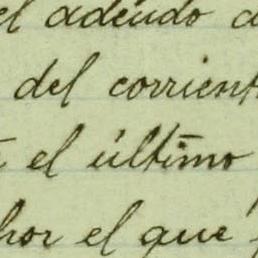 el adeudo
del corrient
el último
el que